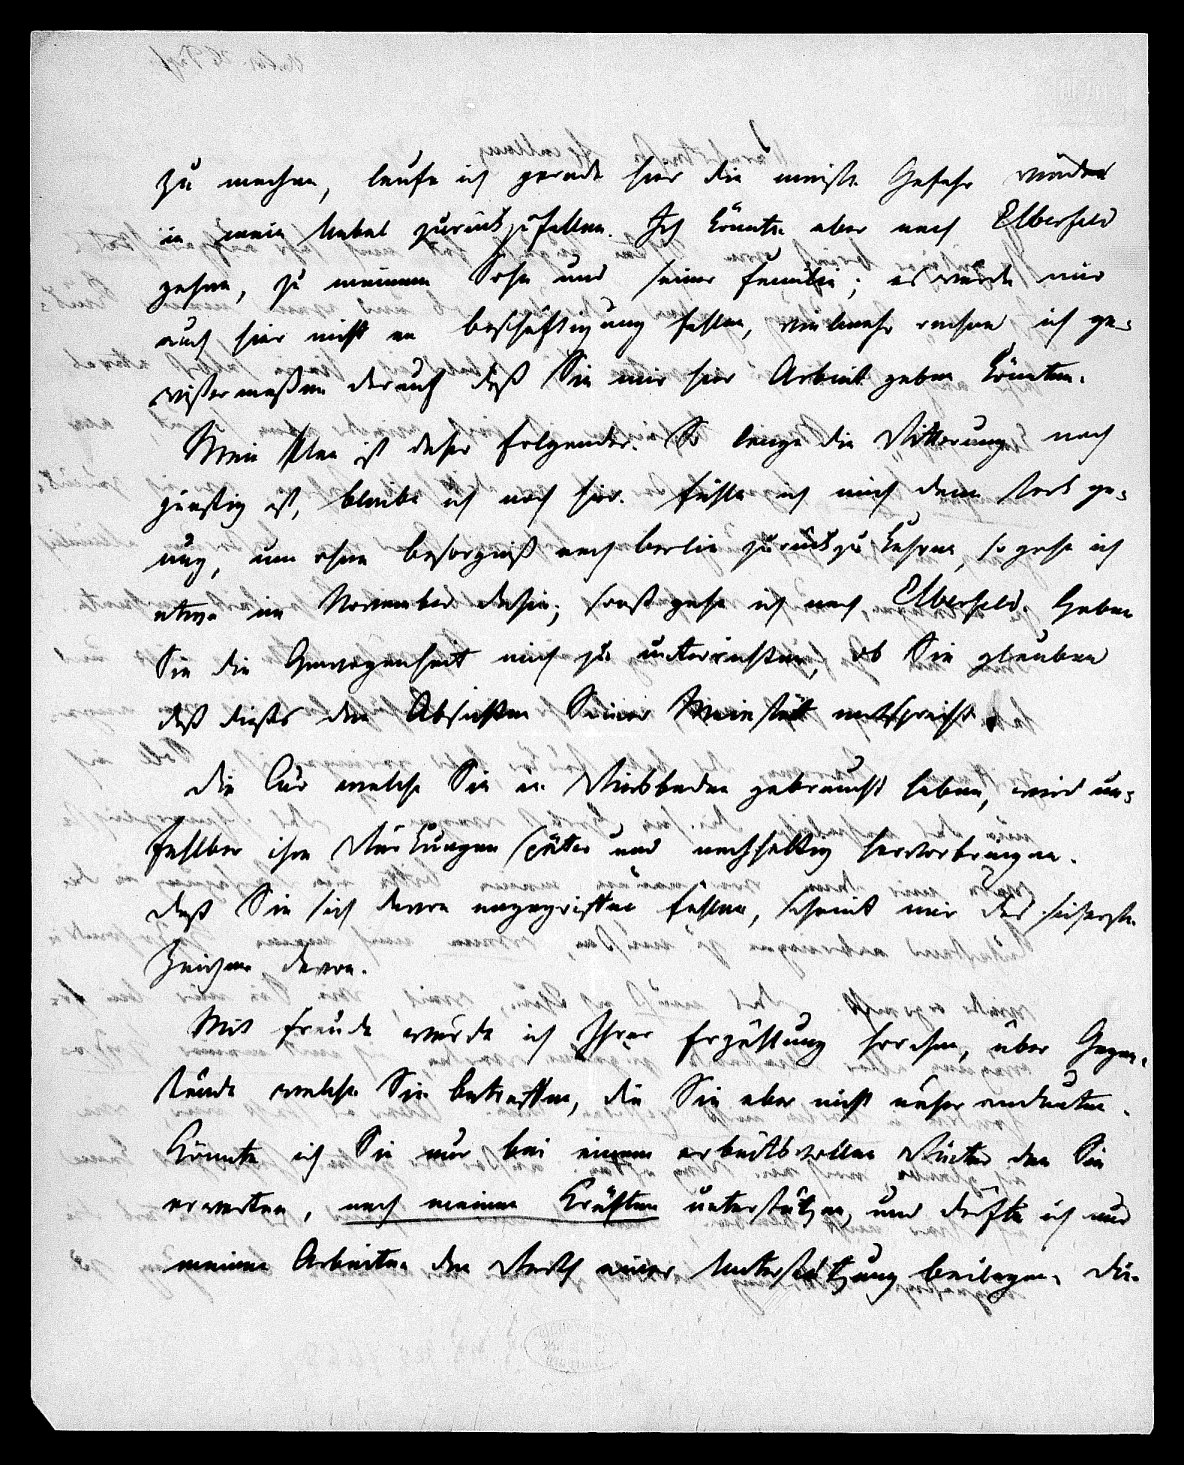 zu machen, laufe ich gerade hier die meiste Gefahr wieder
in mein Uebel zurückzufallen. Ich könnte aber nach Elberfeld
gehen, zu meinem Sohn und seiner Familie; es würde mir
auch hier nicht an Beschäftigung fehlen, vielmehr rechne ich ge-
wißermaßen darauf daß Sie mir hier Arbeit geben könnten.
Mein Plan ist daher folgender. So lange die Witterung noch
günstig ist, bleibe ich noch hier. Fühle ich mich dann stark ge-
nug, um ohne Besorgniß nach Berlin zurückzukehren, so gehe ich
etwa im November dahin; sonst gehe ich nach Elberfeld. Haben
Sie die Gewogenheit mich zu unterrichten, ob Sie glauben
daß dieß den Absichten Seiner Majestät entspricht.
Die Cur welche Sie in Wiesbaden gebraucht haben, wird un-
fehlbar ihre Wirkungen später und nachhaltig hervorbringen.
Daß Sie sich davon angegriffen fühlen, scheint mir das sicherste
Zeichen davon.
Mit Freude würde ich Ihrer Erzählung horchen, über Gegen-
stände welche Sie betreffen, die Sie aber nicht näher andeuten.
Könnte ich Sie nur bei einem arbeitsvollen Winter den Sie
erwarten, nach meinen Kräften unterstützen, und dürfte ich nur
meinen Arbeiten den Werth einer Unterstützung beilegen. Die